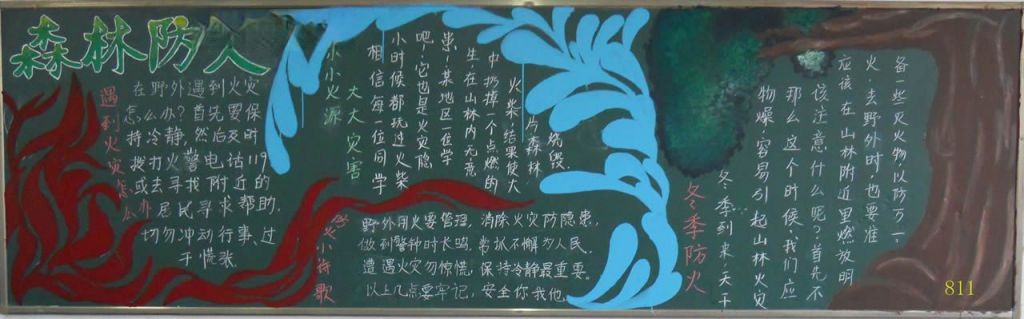 森林防火
遇到火灾怎么办
在野外遇到火灾
怎么办?首先要保
持冷静,然后及时
拨打火警电话119
或去寻找附近的
居民寻求帮助.
切勿冲动行事、过
于慌张
小小火源
大大灾害
相信每一位同学
小时候都玩过火柴
吧!它也是火灾隐
患!某地区一在学
生在山林内无意
中扔掉一个点燃的
火柴,结果使大
片森林
烧毁
防火小诗歌
野外用火要管理,消除火灾防隐患,
做到警钟时长鸣,常抓不懈为人民,
遭遇火灾勿惊慌,保持冷静最重要。
以上几点要牢记,安全你我他。
冬季防火
冬季到来,天干
物燥,容易引起山林火灾
那么这个时候,我们应
该注意什么呢?首先不
应该在山林附近里燃放明
火、去野外时,也要准
备一些灭火物,以防万一、
811